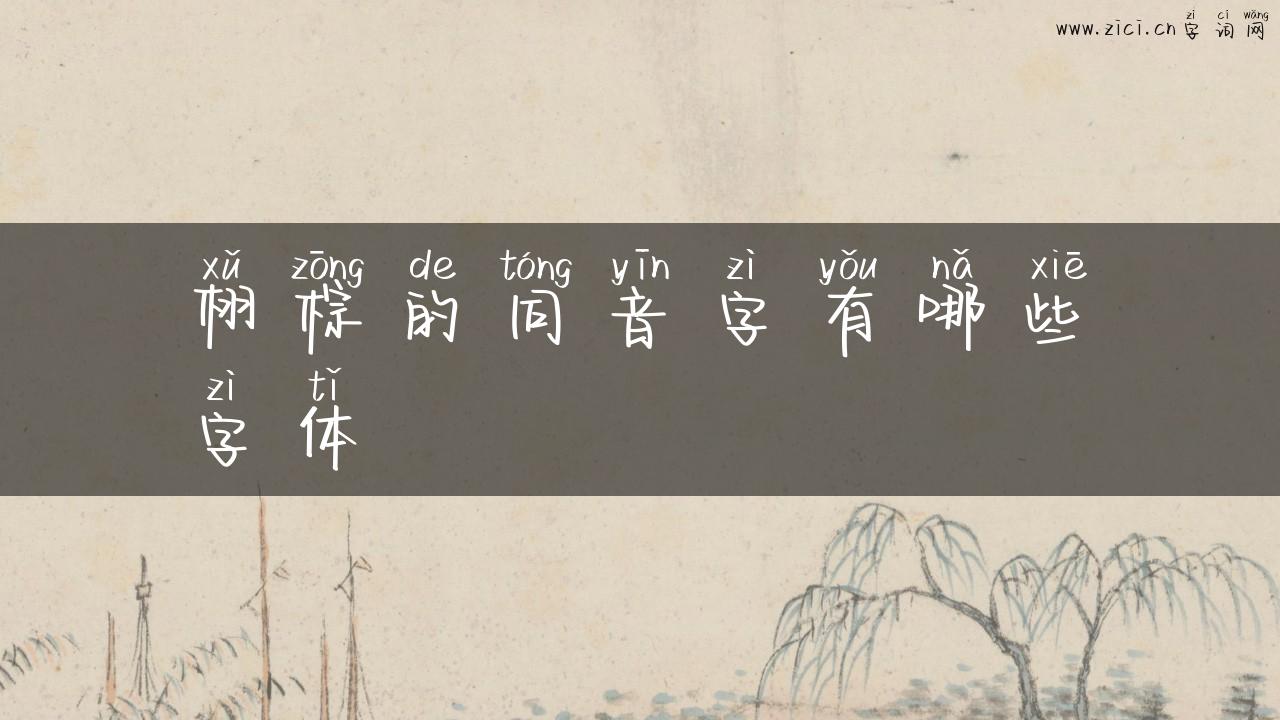 zì cí wǎng
www.zici.cn 字词网
xǔ zōng de tóng yīn zì yǒu nǎ xiē
栩棕的同音字有哪些
zì tǐ
字体